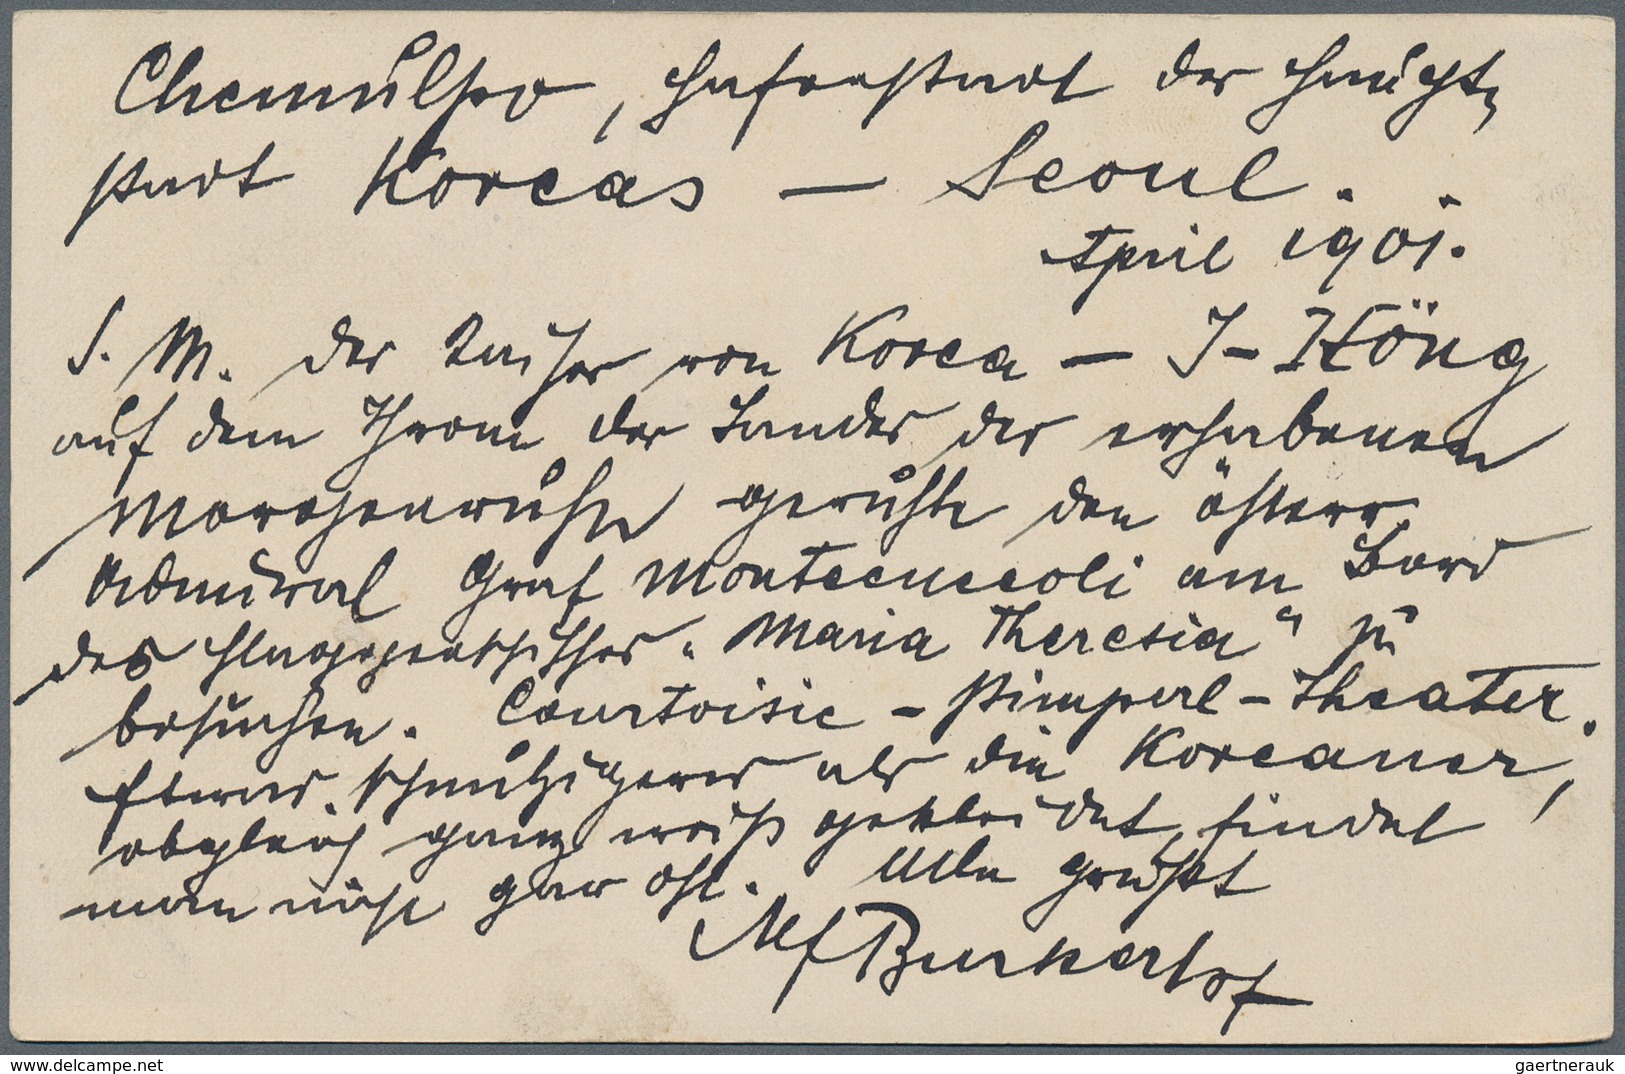 Chemulpo, Hafenstadt der Haupt-
stadt Koreas — Seoul.
April 1901.
S. M. der Kaiser von Korea — I-Höng
auf dem Throne des Landes der erhabenen
Morgenruhe geruhte den österr.
Admiral Graf Montecuccoli am Bord
des Flaggenschiffes „Maria Theresia“ zu
besuchen. Courtoisie - Pimperl - Theater.
Etwas schmutzigeres als die Koreaner,
obgleich ganz weiß gekleidet, findet
man nicht gar oft. Alle grüßt
Alf Burkerts
www.delcampe.net
gaertnerauk